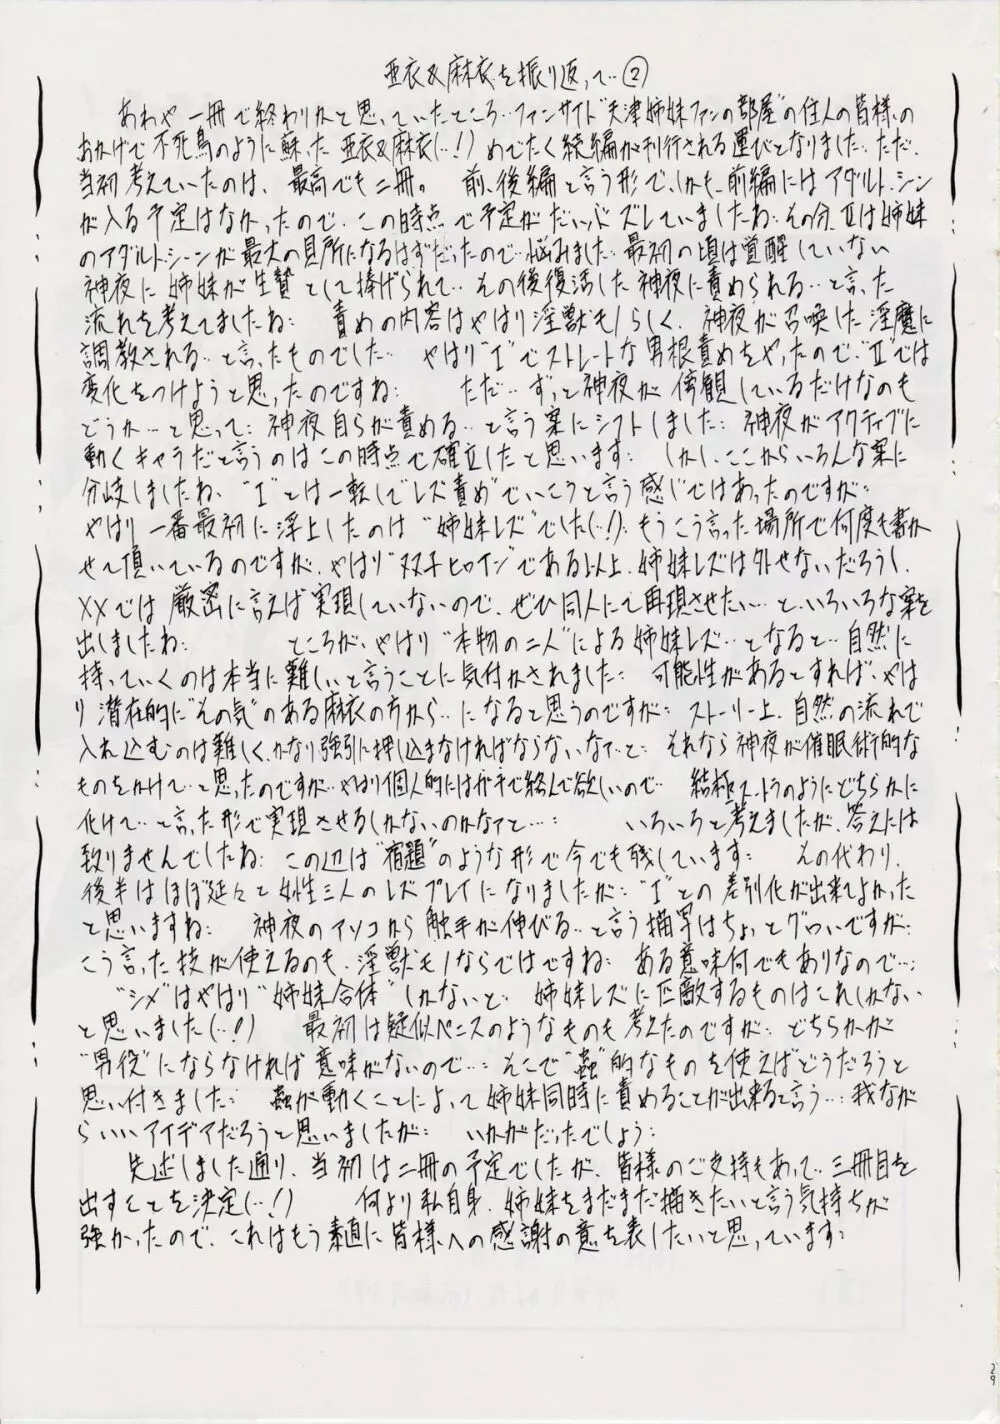 亜衣&麻衣を振り返って‥②
あわや一冊で終わりかと思っていたところ‥ファンサイト"天津姉妹ファンの部屋"の住人の皆様の
おかげで不死鳥のように蘇った亜衣&麻衣(‥!) めでたく続編が刊行される運びとなりました‥ただ、
当初考えていたのは、最高でも二冊。 前、後編と言う形で、しかも、前編にはアダルト・シーン
が入る予定はなかったので、この時点で予定がだいぶズレていましたね‥その分、Ⅱは姉妹
のアダルト・シーンが最大の見所になるはずだったので‥悩みました‥最初の頃は覚醒していない
神夜に姉妹が生贄として捧げられて‥その後復活した神夜に責められる‥と言った
流れを考えてましたね‥ 責めの内容はやはり淫獣モノらしく、神夜が召喚した淫魔に
調教される‥と言ったものでした‥ やはり"Ⅰ"でストレートな男根責めをやったので、"Ⅱ"では
変化をつけようと思ったのですね‥ ただ‥ずっと神夜が傍観しているだけなのも
どうか‥と思って‥神夜自らが責める‥と言う案にシフトしました‥神夜がアクティブに
動くキャラだと言うのはこの時点で確立したと思います‥ しかし、ここからいろんな案に
分岐しましたね、"Ⅰ"とは一転して"レズ責め"でいこうと言う感じではあったのですが‥
やはり一番最初に浮上したのは"姉妹レズ"でした(‥!)‥もうこう言った場所で何度も書か
せて頂いているのですが、やはり"双子ヒロイン"である以上、姉妹レズは外せないだろうし、
XXでは厳密に言えば実現していないので、ぜひ同人にて再現させたい‥と、いろいろな案を
出しましたね‥ ところが、やはり"本物の二人"による姉妹レズ‥となると‥自然に
持っていくのは本当に難しいと言うことに気付かされました‥ 可能性があるとすれば、やは
り潜在的に"その気"のある麻衣の方から‥になると思うのですが‥ストーリー上、自然の流れで
入れ込むのは難しく、かなり強引に押し込まなければならないなァ‥と‥それなら神夜が催眠術的な
ものをかけて‥と思ったのですが‥やはり個人的にはガチで絡んで欲しいので‥ 結極ストラのようにどちらかに
化けて‥と言った形で実現させるしかないのかなァと‥: いろいろと考えましたが、答えには
致りませんでしたね‥この辺は"宿題"のような形で今でも残しています‥ その代わり、
後半はほぼ延々と女性三人のレズプレイになりましたが‥"Ⅰ"との差別化が出来てよかった
と思いますね‥ 神夜のアソコから触手が伸びる‥と言う描写はちょっとグロいですが‥
こう言った技が使えるのも、淫獣モノならではですね‥ある意味何でもありなので‥:
"シメ"はやはり"姉妹合体"しかないと‥姉妹レズに匹敵するものはこれしかない
と思いました(‥!) 最初は疑似ペニスのようなものも考えたのですが‥どちらかが
"男役"にならなければ意味がないので‥:そこで"蟲"的なものを使えばどうだろうと
思い付きました‥ 蟲が動くことによって姉妹同時に責めることが出来ると言う‥:我なが
らいいアイデアだろうと思いましたが‥ いかがだったでしょう‥
先述しました通り、当初は二冊の予定でしたが、皆様のご支持もあって、三冊目を
出すことを決定(‥!) 何より私自身、姉妹をまだまだ描きたいと言う気持ちが
強かったので、これはもう素直に皆様への感謝の意を表したいと思っています‥
29